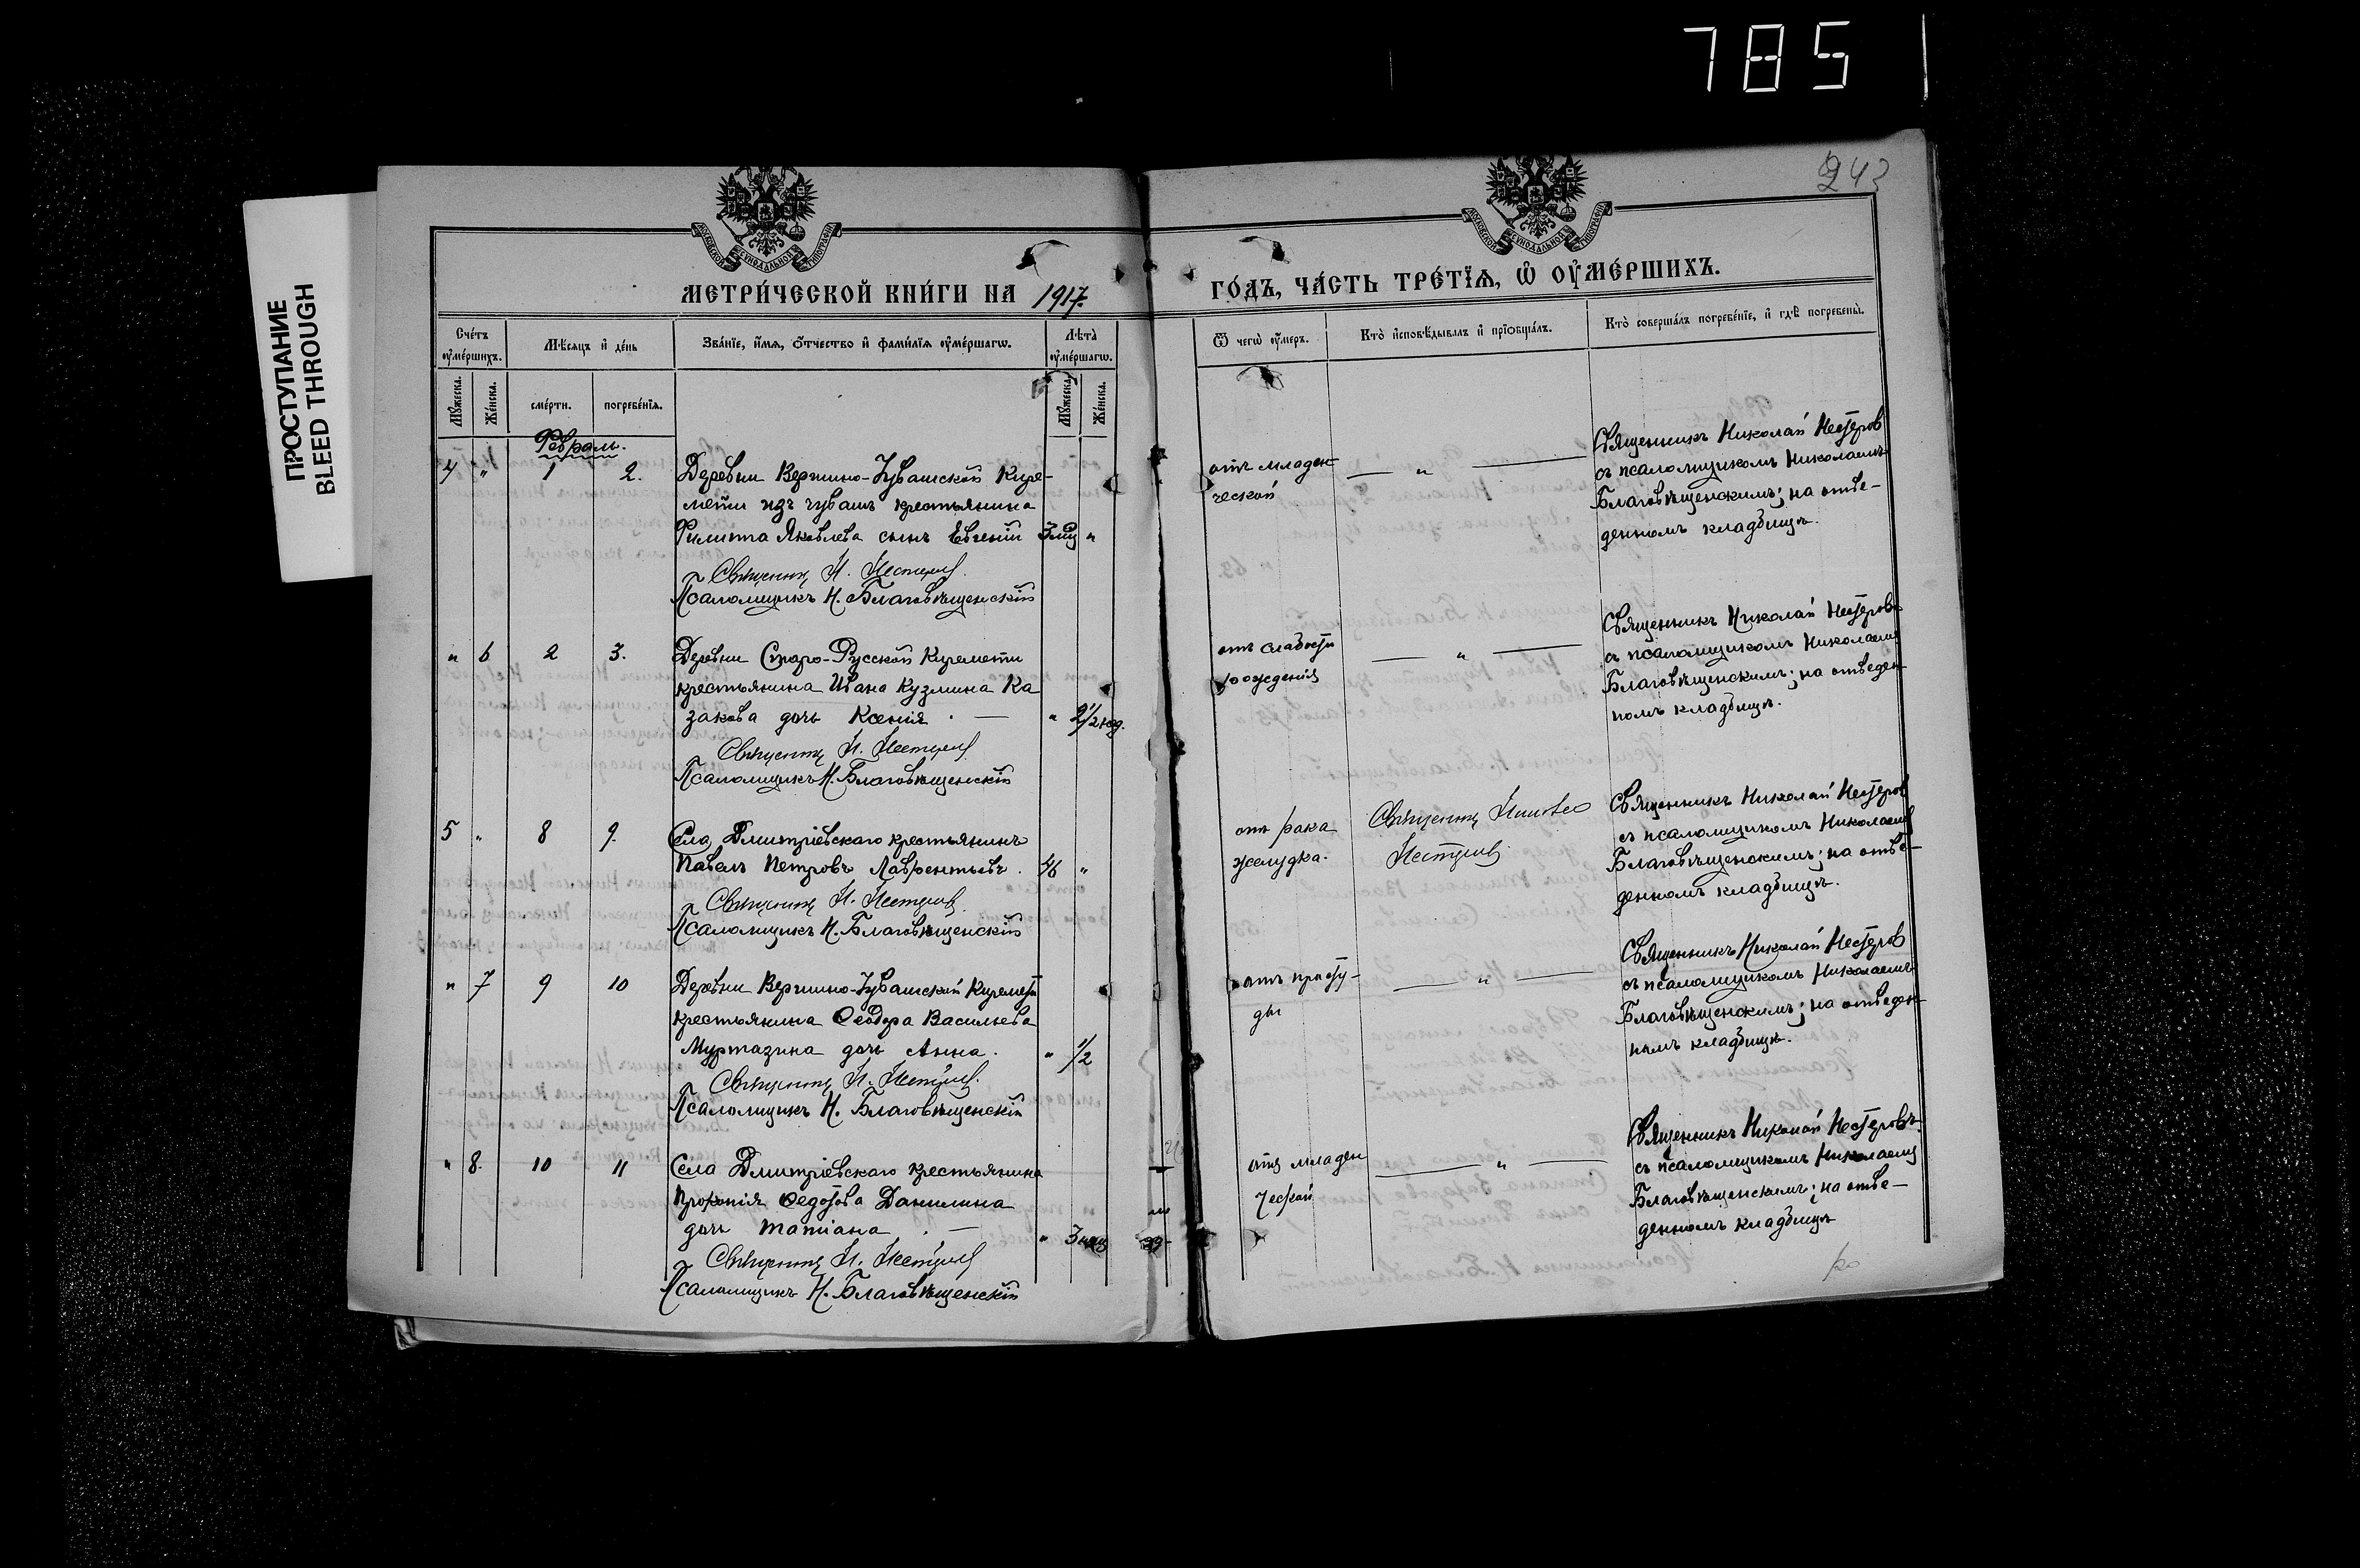 785
ПРОСТУПАНИЕ
BLEED THROUGH
243
МОСКОВСКОЙ СѴНОДАЛЬНОЙ ТИПОГРАФІИ
МОСКОВСКОЙ СѴНОДАЛЬНОЙ ТИПОГРАФІИ
МЕТРИ́ЧЕСКОЙ КНИ́ГИ НА 1917.
ГО́ДЪ, ЧА́СТЬ ТРЕ́ТЇѦ, Ѡ҆ ОУ҆МЕ́РШИХЪ.
Сче́тъ оу҆ме́ршихъ.
Мѣ́сяцъ и҆ де́нь
Зва́нїе, и҆́мѧ, ѻ҆́тчество и҆ фами́лїѧ оу҆ме́ршагѡ.
Лѣ́та оу҆ме́ршагѡ.
Ѿ чегѡ̀ оу҆́меръ.
Кто̀ и҆сповѣ́дывалъ и҆ прїѻбща́лъ.
Кто̀ соверша́лъ погребе́нїе, и҆ гдѣ̀ погребены̀.
Мꙋ́жеска.
Же́нска.
сме́рти.
погребе́нїѧ.
Мꙋ́жеска.
Же́нска.
Февраль.
4 " 1 2. Деревни Вершино-Чувашской Кире-
мети изъ чувашъ крестьянина
Филиппа Яковлева сынъ Евгений 3 мц "
Священникъ Н. Нестеров
Псаломщикъ Н. Благовѣщенскій
отъ младен-
ческой
— " —
Священникъ Николай Нестеров
съ псаломщикомъ Николаемъ
Благовѣщенскимъ; на отве-
денномъ кладбищѣ.
" 6 2 3. Деревни Старо-Русской Киремети
крестьянина Ивана Кузмина Ка
закова дочь Ксенія. — " 2 1/2 год.
Священникъ Н. Нестеров
Псаломщикъ Н. Благовѣщенскій
отъ слабости
рождения
— " —
Священникъ Николай Нестеровъ
съ псаломщикомъ Николаемъ
Благовѣщенскимъ; на отведен-
номъ кладбищѣ.
5 " 8 9. Села Дмитріевскаго крестьянинъ
Павелъ Петровъ Лаврентьевъ. 46 "
Священникъ Н. Нестеров
Псаломщикъ Н. Благовѣщенскій
отъ рака
желудка.
Священникъ Николай
Нестеров
Священникъ Николай Нестеров
съ псаломщикомъ Николаемъ
Благовѣщенскимъ; на отве-
денномъ кладбищѣ.
" 7 9 10 Деревни Вершино-Чувашской Киремети
крестьянина Ѳеодора Васильева
Муртазина дочь Анна. " 1/2
Священникъ Н. Нестеров.
Псаломщикъ Н. Благовѣщенскій
отъ просту-
ды
— " —
Священникъ Николай Нестеров
съ псаломщикомъ Николаемъ
Благовѣщенскимъ; на отведен-
номъ кладбищѣ.
" 8. 10 11 Села Дмитріевскаго крестьянина
Прокопія Ѳедотова Данилина
дочь Татіана. — " 3 нед
Священникъ Н. Нестеров
Псаломщикъ Н. Благовѣщенскій
отъ младен
ческой
— " —
Священникъ Николай Нестеровъ
съ псаломщикомъ Николаемъ
Благовѣщенскимъ; на отве-
денномъ кладбищѣ